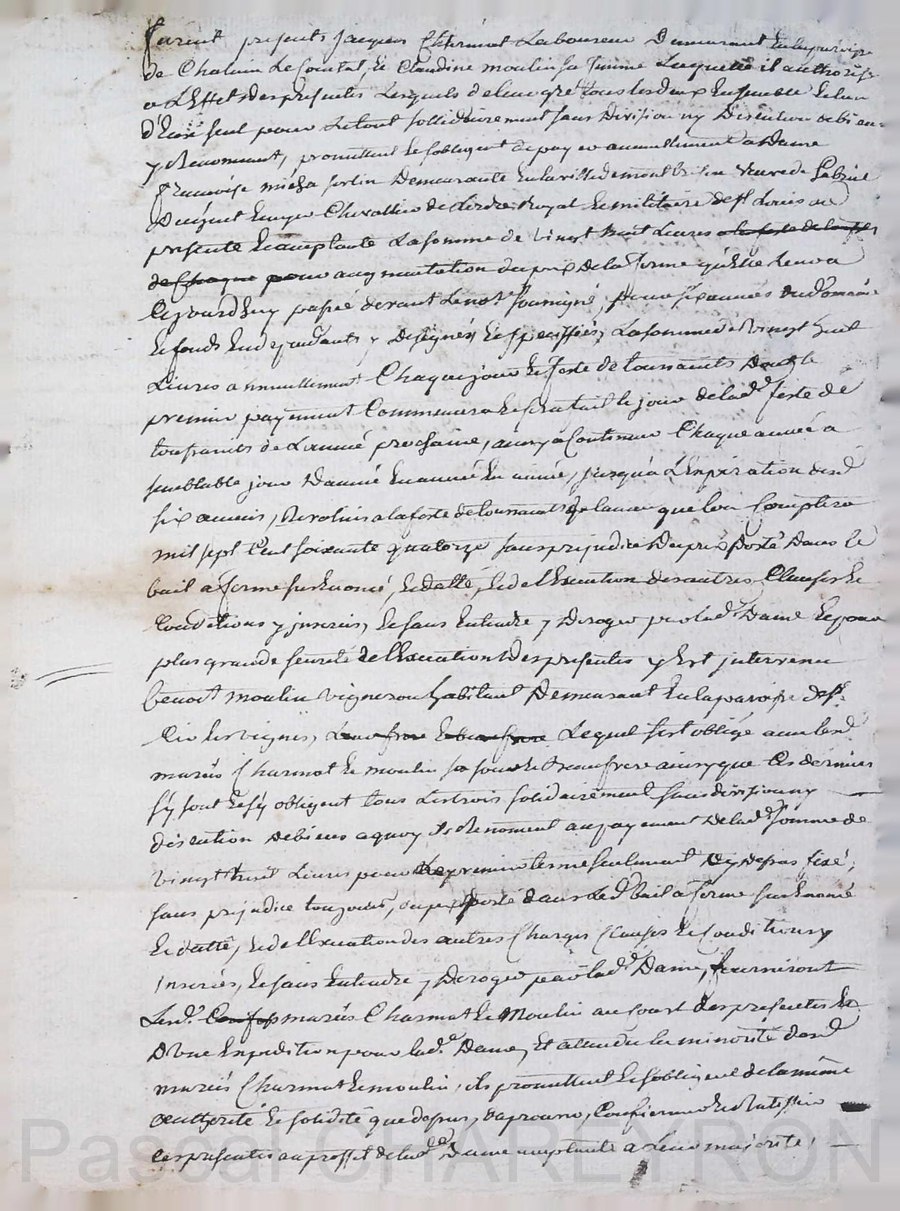 furent presents Jacques Charmat Laboureur Demeurant en la parroisse
de Chalain Le Comtal, et Claudine moulin sa femme Laquelle il authorise
a L'Effet des presentes Lesquels de leur gré tous les deux Ensemble et l'un
d'Eux seul pour Le tout sollidairement sans Division ny Discution de biens
y Renoncant, promettent et s'obligent de payer annuellement a Dame
françoise Demeurante en la ville de montbrison veuve de Gabriel
Chevallier de L'ordre Royal et militaire de st Louis
presente et acceptante La somme de vingt huit Livres a la feste de
de Chaque pour augmentation du prix de la ferme qu'Elle Leur a
Cejourd'huy passé devant Le not. soussigné, pour six années du Domaine
et fonds En dependants y Designés et speciffiés, La somme de vingt huit
Livres annuellement Chaque jour et feste de toussaints Dont le
premier payement Commencera et sera fait le jour de lad.e feste de
toussaints de L'année prochaine, ainsy a Continuer Chaque année a
semblable jour D'année en année en année, jusqu'a L'Expiration desd.
six années, Revolus a la feste de toussaints de l'année que l'on Comptera
mil sept Cent soixante quatorze sans prejudice Du prix porté Dans le
bail a ferme susEnoncé, et datté, et de l'Execution des autres Clauses et
Conditions y inserées, et sans Entendre y Deroger par lad.e Dame Et pour
plus grande seureté de l'Execution Des presentes y Est intervenu
benoit moulin vigneron habitant Demeurant en la paroisse de st.
Cir les vignes, Leur frere et beau frere Lequel s'est obligé avec lesd.
mariés Charmat et moulin sa soeur et beaufrere ainsy que Ces derniers
s'y sont et s'y obligent tous Les trois solidairement sans division ny
discution de biens a quoy ils Renoncent au payement De lad.e somme de
vingt huit Livres pour Le premier terme seulement Cy depus fixé,
sans prejudice toujours, du prix porté dans Led. Bail a ferme susEnoncé
et datté, et de l'Execution des autres Charges Clauses et Conditions y
Inserées, et sans Entendre y Deroger par lad.e Dame, fourniront
Lesd. mariés Charmat et Moulin au Des presentes et
D'une Expedition pour lad.e Dame, Et attendu la minorité desd.
mariés Charmat et moulin, ils promettent et s'obligent de la même
authorité et solidité que depus, d'aprouver, Confirmer et Ratiffier
Ces presentes au proffit de lad.e Dame acceptante a Leur majorité,
Pascal CHAREYRON